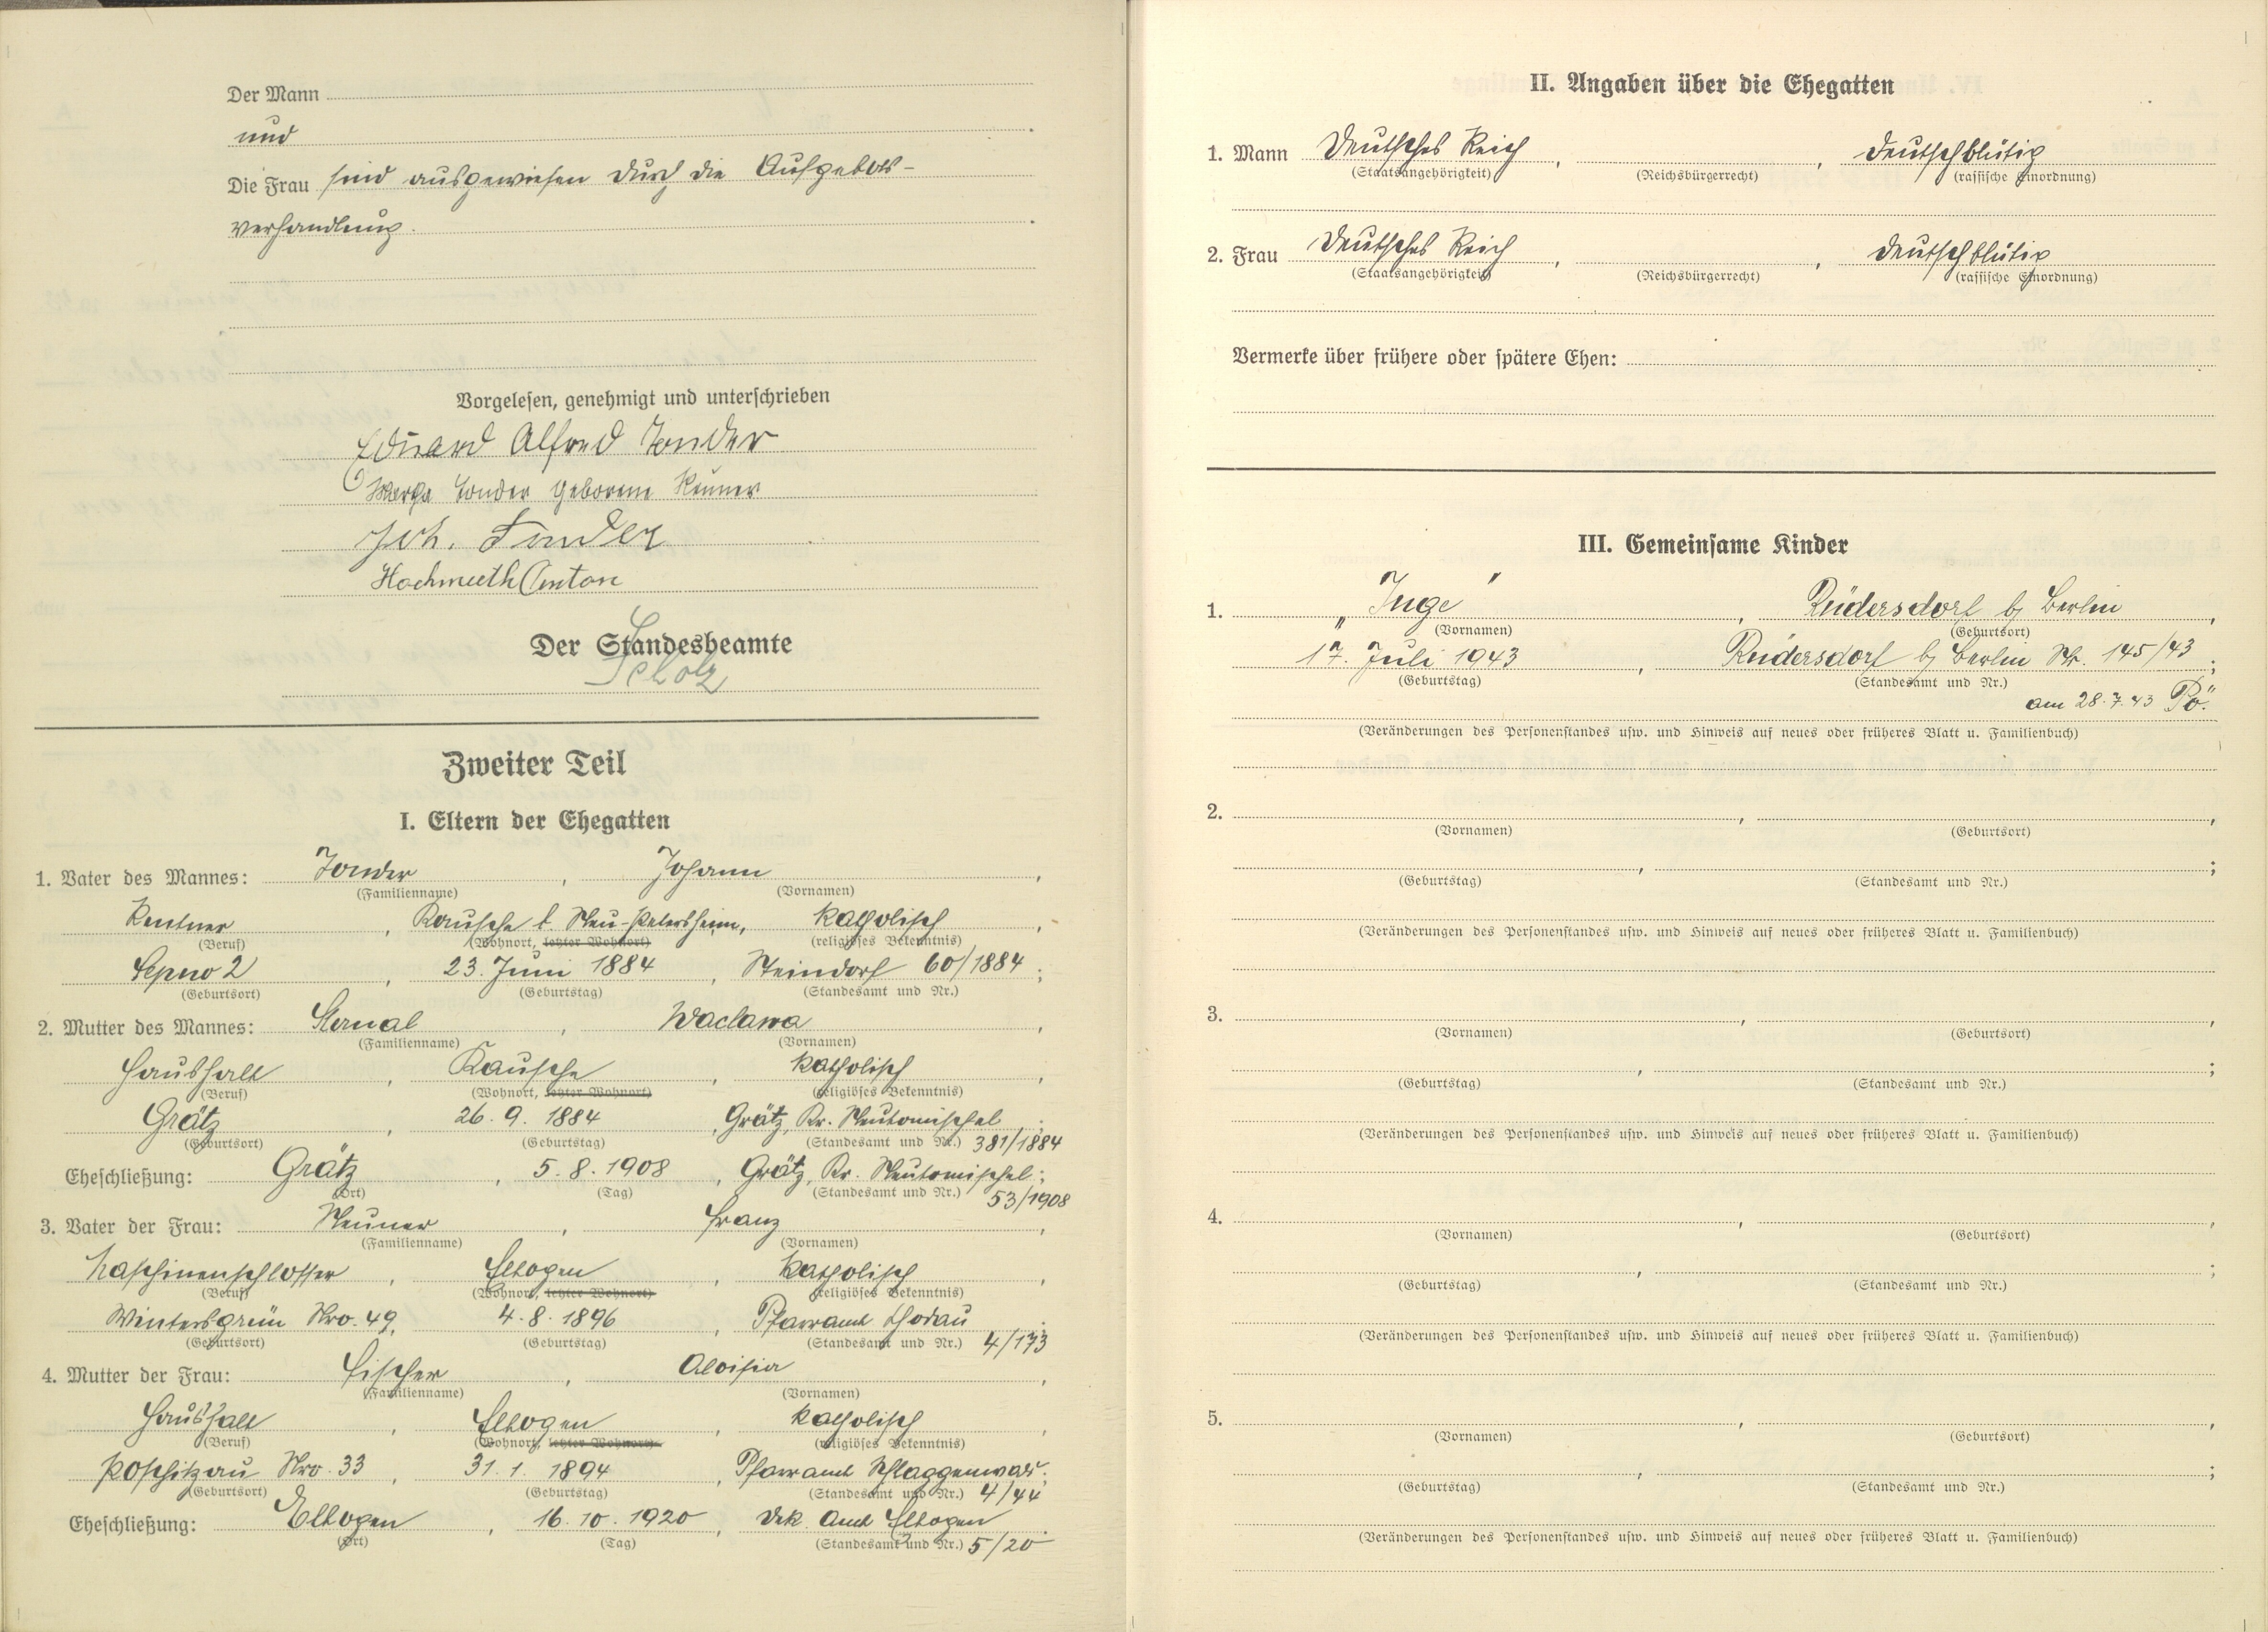 Der Mann
und
Die Frau sind ausgewiesen durch die Aufgebots-
verhandlung.
Vorgelesen, genehmigt und unterschrieben
Eduard Alfred Tonder
Tonder geborene Neuner
Joh. Tonder
Hochmuth Anton
Der Standesbeamte
Scholz
Zweiter Teil
I. Eltern der Ehegatten
1. Vater des Mannes: Tonder, Johann,
(Familienname) (Vornamen)
Rentner, Rausche b. Neu-Petersheim, katholisch,
(Beruf) (Wohnort, letzter Wohnort) (religiöses Bekenntnis)
Sepno 2, 23. Juni 1884, Steindorf 60/1884;
(Geburtsort) (Geburtstag) (Standesamt und Nr.)
2. Mutter des Mannes: Waclawa,
(Familienname) (Vornamen)
Haushalt, Rausche, katholisch,
(Beruf) (Wohnort, letzter Wohnort) (religiöses Bekenntnis)
Grätz, 26. 9. 1884, Grätz, Kr. Neutomischel;
(Geburtsort) (Geburtstag) (Standesamt und Nr.) 381/1884
Eheschließung: Grätz, 5. 8. 1908, Grätz, Kr. Neutomischel;
(Ort) (Tag) (Standesamt und Nr.) 53/1908
3. Vater der Frau: Neuner, Franz,
(Familienname) (Vornamen)
Maschinenschlosser, Elbogen, katholisch,
(Beruf) (Wohnort, letzter Wohnort) (religiöses Bekenntnis)
Wintersgrün Nro. 49, 4. 8. 1896, Pfarramt Chodau;
(Geburtsort) (Geburtstag) (Standesamt und Nr.) 4/173
4. Mutter der Frau: Fischer, Aloisia,
(Familienname) (Vornamen)
Haushalt, Elbogen, katholisch,
(Beruf) (Wohnort, letzter Wohnort) (religiöses Bekenntnis)
Poschitzau Nro. 33, 31. 1. 1894, Pfarramt Schlaggenwald;
(Geburtsort) (Geburtstag) (Standesamt und Nr.) 4/44
Eheschließung: Elbogen, 16. 10. 1920, Dek. Amt Elbogen.
(Ort) (Tag) (Standesamt und Nr.) 5/20
II. Angaben über die Ehegatten
1. Mann Deutsches Reich, , deutschblütig
(Staatsangehörigkeit) (Reichsbürgerrecht) (rassische Einordnung)
2. Frau Deutsches Reich, , deutschblütig
(Staatsangehörigkeit) (Reichsbürgerrecht) (rassische Einordnung)
Vermerke über frühere oder spätere Ehen:
III. Gemeinsame Kinder
1. „Inge", Rüdersdorf b/ Berlin,
(Vornamen) (Geburtsort)
17. Juli 1943, Rüdersdorf b/ Berlin Nr. 145/43;
(Geburtstag) (Standesamt und Nr.)
am 28. 7. 43 Pö.
(Veränderungen des Personenstandes usw. und Hinweis auf neues oder früheres Blatt u. Familienbuch)
2. , ,
(Vornamen) (Geburtsort)
, ;
(Geburtstag) (Standesamt und Nr.)
(Veränderungen des Personenstandes usw. und Hinweis auf neues oder früheres Blatt u. Familienbuch)
3. , ,
(Vornamen) (Geburtsort)
, ;
(Geburtstag) (Standesamt und Nr.)
(Veränderungen des Personenstandes usw. und Hinweis auf neues oder früheres Blatt u. Familienbuch)
4. , ,
(Vornamen) (Geburtsort)
, ;
(Geburtstag) (Standesamt und Nr.)
(Veränderungen des Personenstandes usw. und Hinweis auf neues oder früheres Blatt u. Familienbuch)
5. , ,
(Vornamen) (Geburtsort)
, ;
(Geburtstag) (Standesamt und Nr.)
(Veränderungen des Personenstandes usw. und Hinweis auf neues oder früheres Blatt u. Familienbuch)